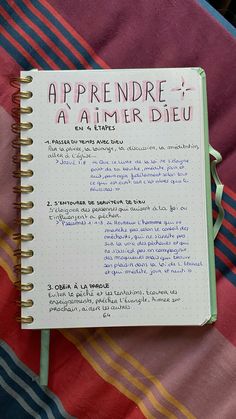 APPRENDRE
À AIMER DIEU
EN 4 ÉTAPES
1. PASSER DU TEMPS AVEC DIEU
Par la prière, la louange, la discussion, la méditation,
aller à l'église...
Josué 1:8 Que ce livre de la loi ne s'éloigne
point de ta bouche, médite, jour et
nuit, agir fidèlement selon tout
ce qui est écrit car c'est alors que tu
2. S'ENTOURER DE SERVITEUR DE DIEU
S'éloigner des personnes qui nuisent à la foi ou
influençent a pécher.
Psaumes 1:1-2 Heureux l'homme qui ne
marche pas selon le conseil des
méchants, qui ne s'arrête pas
sur la voie des pécheurs et qui
ne s'assied pas en compagnie
des moqueurs mais qui trouve
son plaisir dans la loi de l'Éternel
et qui médite, jour et nuit
3. OBÉIR À LA PAROLE
Éviter le péché et les tentations. Écouter ses
enseignements, prêcher l'Évangile. Aimer son
prochain, aider les autres.
64